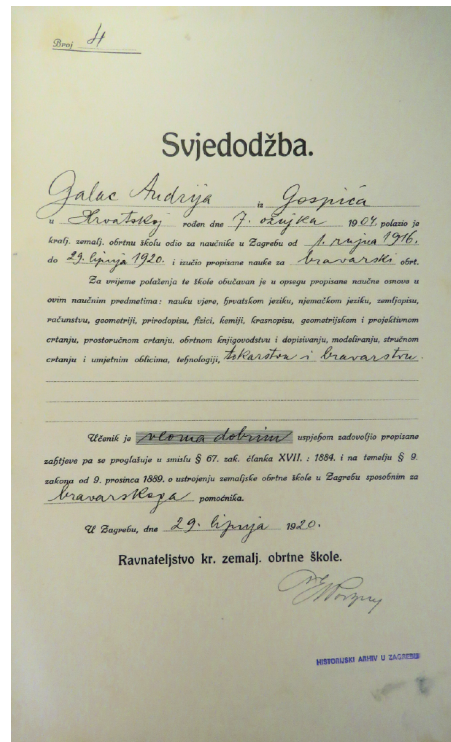 Broj 4
Svjedodžba.
Galac Andrija iz Gospića
u Hrvatskoj rođen dne 7. ožujka 1904. polazio je
kralj. zemalj. obrtnu školu odio za naučnike u Zagrebu od 1. rujna 1916.
do 29. lipnja 1920. i izučio propisane nauke za bravarski obrt.
Za vrijeme polaženja te škole obučavan je u opsegu propisane naučne osnove u
ovim naučnim predmetima: nauku vjere, hrvatskom jeziku, njemačkom jeziku, zemljopisu,
računstvu, geometriji, prirodopisu, fizici, kemiji, krasnopisu, geometrijskom i projektivnom
crtanju, prostoručnom crtanju, obrtnom knjigovodstvu i dopisivanju, modeliranju, stručnom
crtanju i umjetnim oblicima, tehnologiji, tokarstvu i bravarstvu.
Učenik je veoma dobrim uspjehom zadovoljio propisane
zahtjeve pa se proglašuje u smislu § 67. zak. članka XVII. : 1884. i na temelju § 9.
zakona od 9. prosinca 1889. o ustrojenju zemaljske obrtne škole u Zagrebu sposobnim za
bravarskoga pomoćnika.
U Zagrebu, dne 29. lipnja 1920.
Ravnateljstvo kr. zemalj. obrtne škole.
HISTORIJSKI ARHIV U ZAGREBU